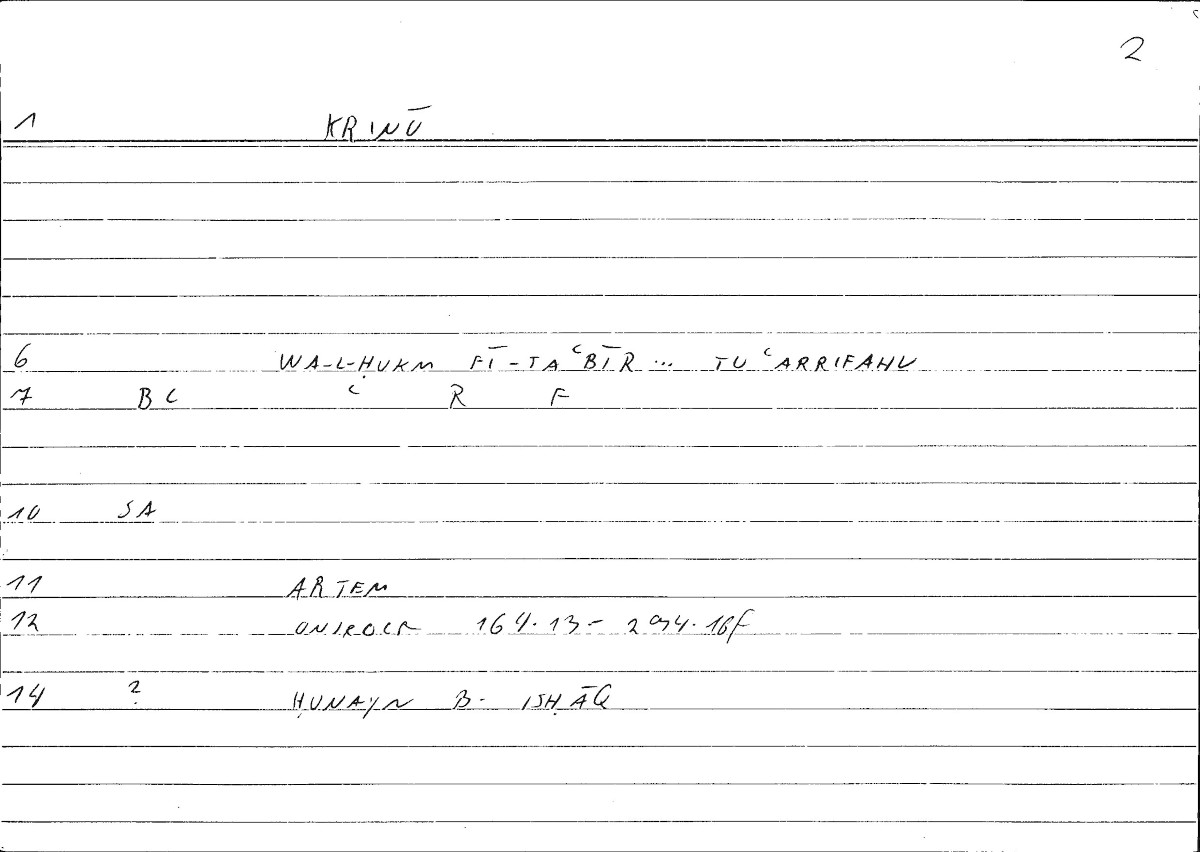 2
1 KRINŪ
6 WA-L-ḤUKM FĪ-TAʿBĪR ... TUʿARRIFAHU
7 BC ʿ R F
10 SA
11 ARTEM
12 ONIROCR 164.13- 294.18f
14 ? ḤUNAYN B. ISḤĀQ